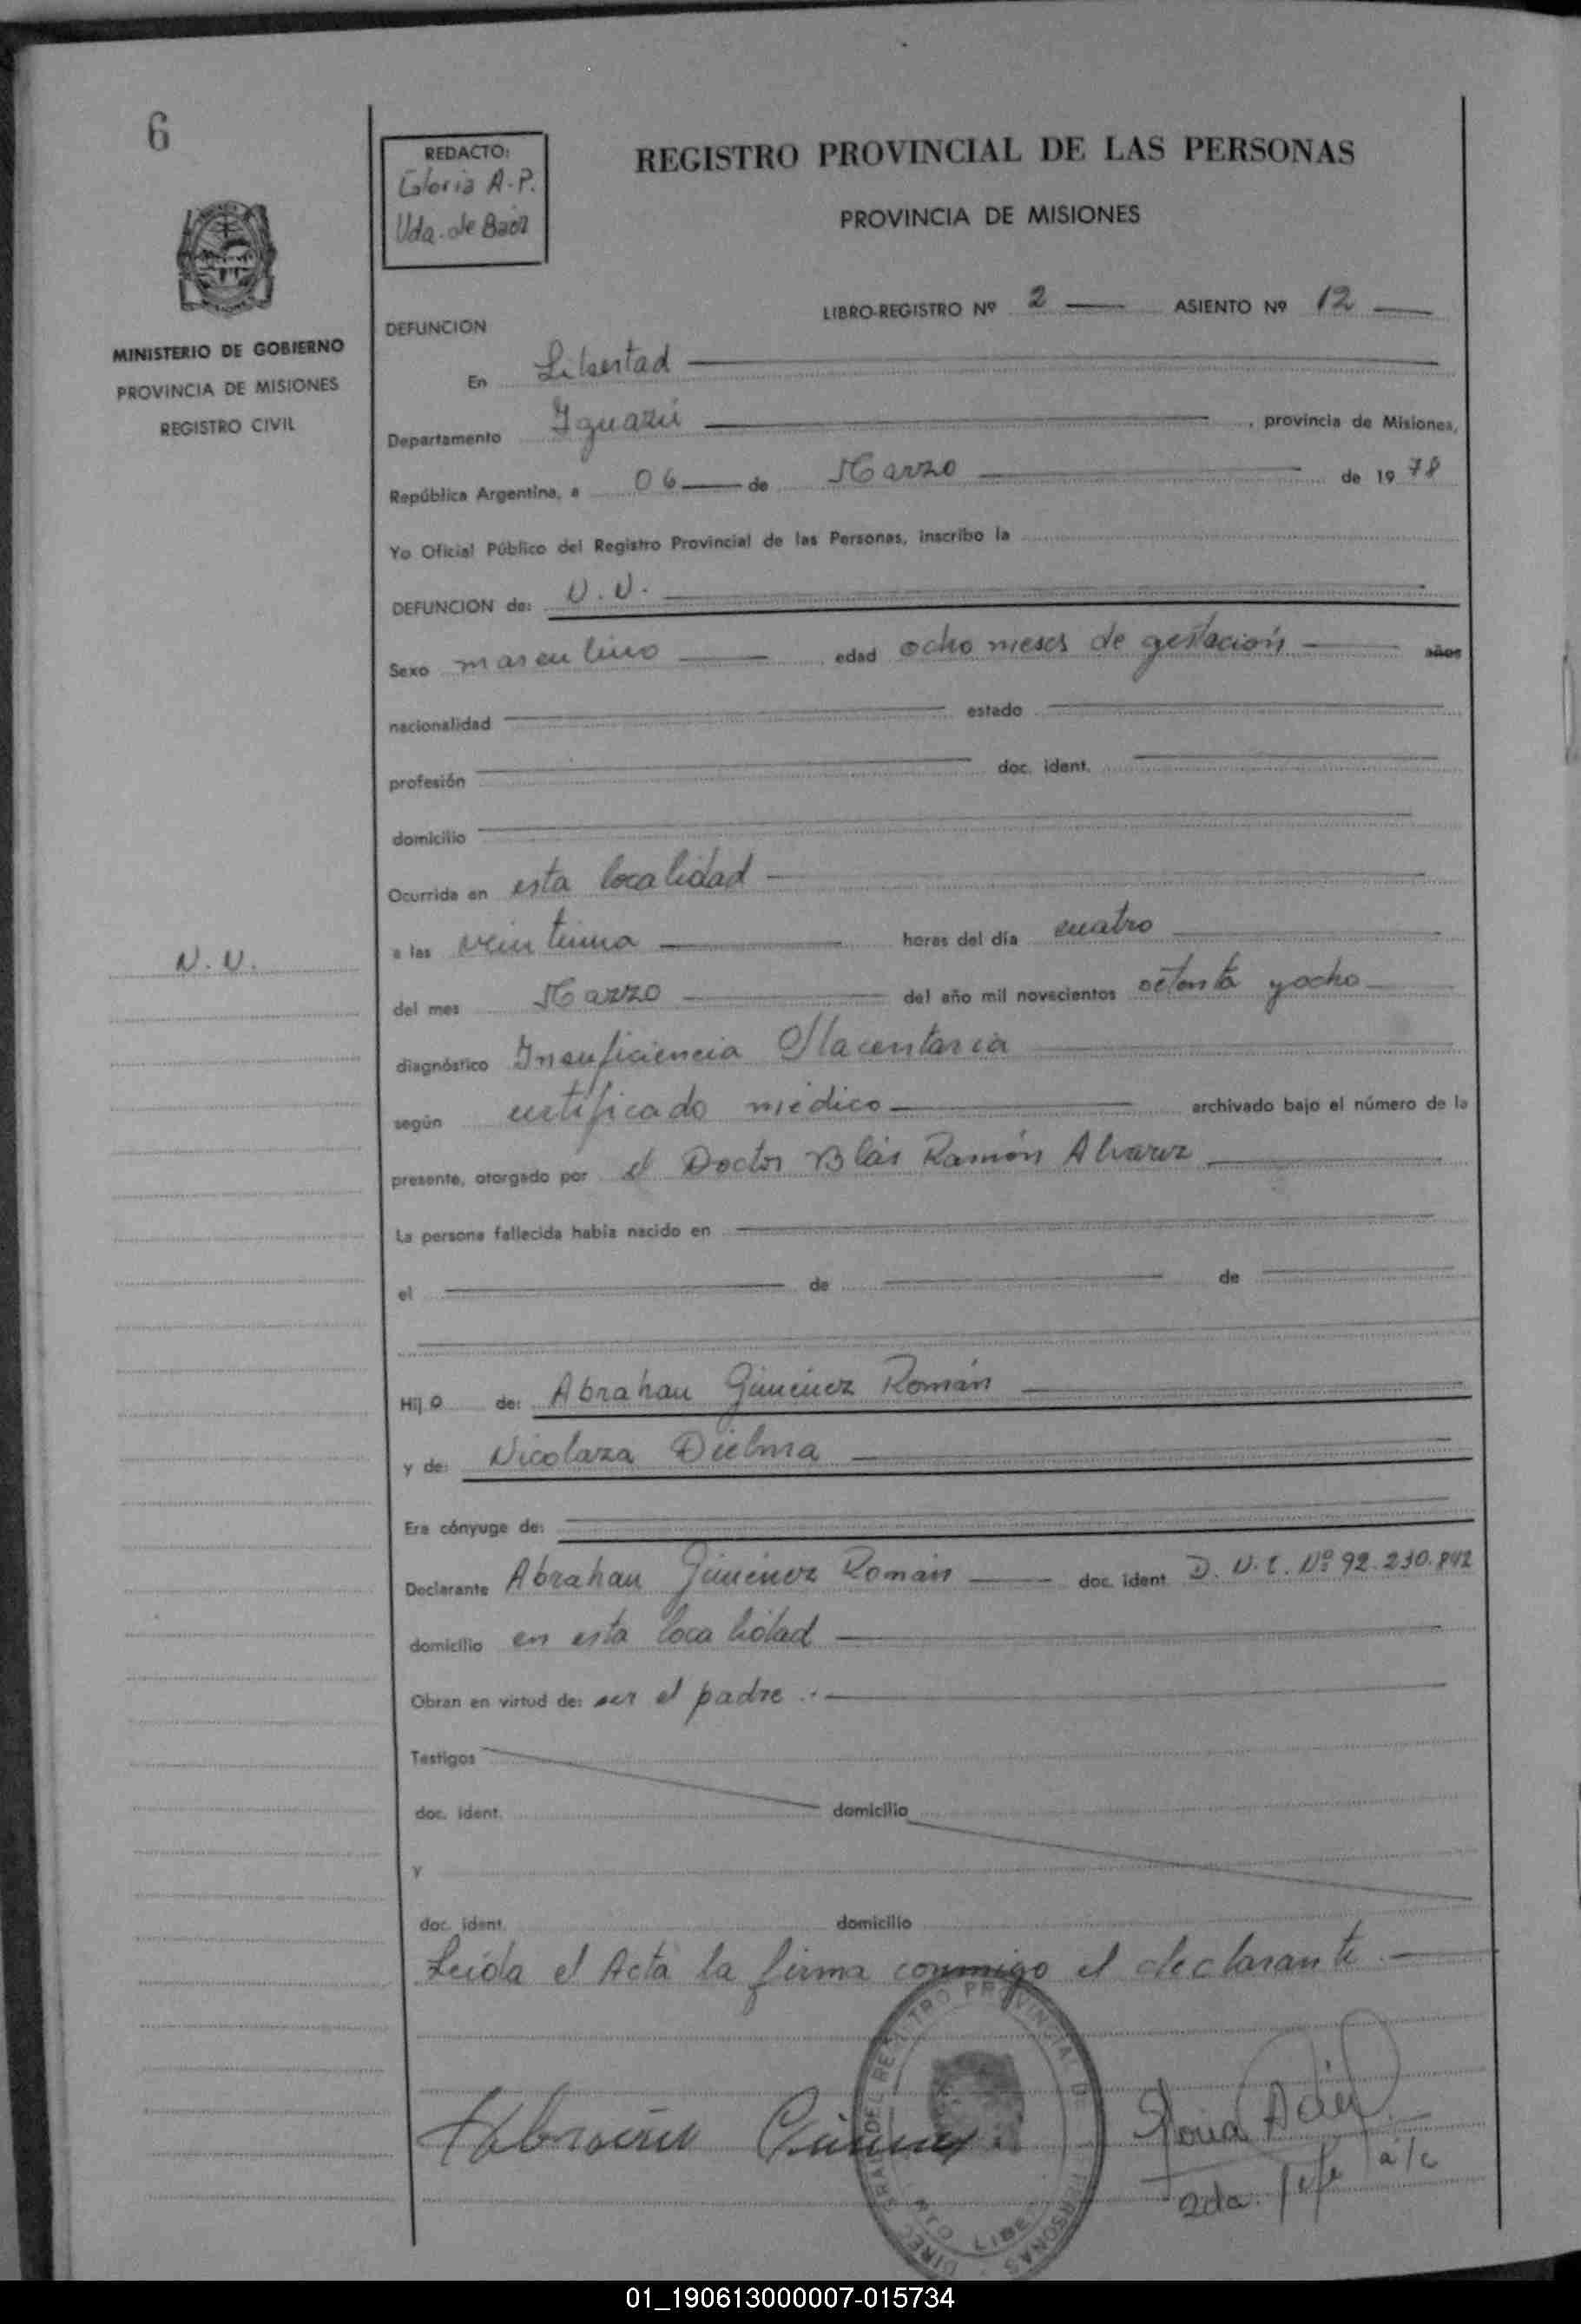 6
REDACTO:
Gloria A. P.
Vda. de Baez
REGISTRO PROVINCIAL DE LAS PERSONAS
PROVINCIA DE MISIONES
MINISTERIO DE GOBIERNO
PROVINCIA DE MISIONES
REGISTRO CIVIL
LIBRO-REGISTRO Nº 2 ASIENTO Nº 12
DEFUNCION
En Libertad
Departamento Iguazú, provincia de Misiones,
República Argentina, a 06 de Marzo de 1978
Yo Oficial Público del Registro Provincial de las Personas, inscribo la
DEFUNCION de: N.N.
Sexo masculino edad ocho meses de gestación años
nacionalidad estado
profesión doc. ident.
domicilio
Ocurrida en esta localidad
N.N.
a las veintiuna horas del día cuatro
del mes Marzo del año mil novecientos setenta y ocho
diagnóstico Insuficiencia Placentaria
según certificado médico archivado bajo el número de la
presente, otorgado por el Doctor Blás Ramón Alvarez
La persona fallecida había nacido en
el de de
Hijo de: Abrahan Gimenez Román
y de: Nicolaza Dielma
Era cónyuge de:
Declarante Abrahan Jimenez Román doc. ident. D.N.I. Nº 92.230.842
domicilio en esta localidad
Obran en virtud de: ser el padre.-
Testigos
doc. ident. domicilio
y
doc. ident. domicilio
Leída el Acta la firma conmigo el declarante.
DIREC. GRAL. DEL REGISTRO PROVINCIAL DE PERSONAS
2da. Jefe a/c
01_190613000007-015734